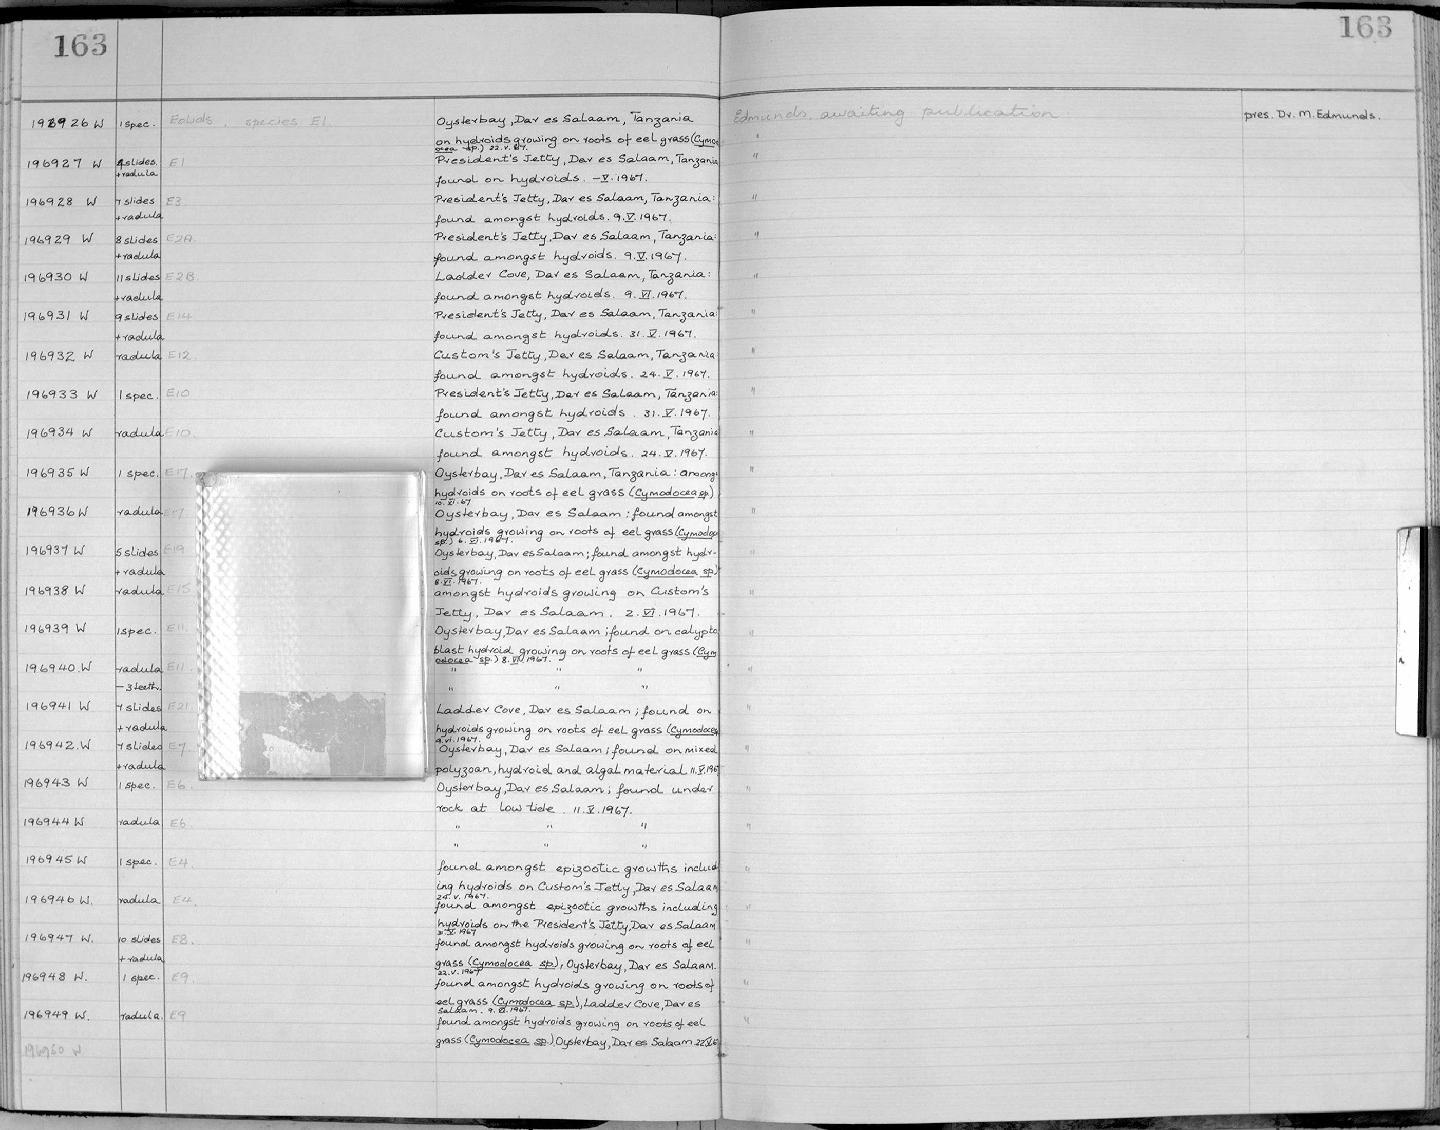 163
163
196926 W 1 spec. Eolids, species E1. Oysterbay, Dar es Salaam, Tanzania Edmunds, awaiting publication pres. Dr. M. Edmunds.
on hydroids growing on roots of eel grass (Cymod "
ocea sp.) 22.V.67.
196927 W 4 slides E1 President's Jetty, Dar es Salaam, Tanzania "
+radula found on hydroids. -V.1967.
196928 W 7 slides E3 President's Jetty, Dar es Salaam, Tanzania: "
+radula found amongst hydroids. 9.V.1967.
196929 W 8 slides E2A. President's Jetty, Dar es Salaam, Tanzania: "
+radula found amongst hydroids. 9.V.1967.
196930 W 11 slides E2B. Ladder Cove, Dar es Salaam, Tanzania: "
+radula found amongst hydroids. 9.VI.1967.
196931 W 9 slides E14 President's Jetty, Dar es Salaam, Tanzania "
+radula found amongst hydroids. 31.V.1967.
196932 W radula E12. Custom's Jetty, Dar es Salaam, Tanzania "
found amongst hydroids. 24.V.1967.
196933 W 1 spec. E10 President's Jetty, Dar es Salaam, Tanzania "
found amongst hydroids. 31.V.1967.
196934 W radula E10. Custom's Jetty, Dar es Salaam, Tanzania "
found amongst hydroids. 24.V.1967.
196935 W 1 spec. E17. Oysterbay, Dar es Salaam, Tanzania: among "
hydroids on roots of eel grass (Cymodocea sp)
10.VI.67
196936 W radula E17 Oysterbay, Dar es Salaam; found amongst "
hydroids growing on roots of eel grass (Cymodoc
sp.) 6.VI.1967.
196937 W 5 slides E19 Oysterbay, Dar es Salaam; found amongst hydr- "
+radula oids growing on roots of eel grass (Cymodocea sp)
8.VI.1967.
196938 W radula E15 amongst hydroids growing on Custom's "
Jetty, Dar es Salaam. 2.VI.1967.
196939 W 1 spec. E11. Oysterbay, Dar es Salaam; found on calypto "
blast hydroid growing on roots of eel grass (Cym
odocea sp.) 8.VI.1967.
196940 W radula E11. " " " "
-3 teeth. " " "
196941 W 7 slides E21 Ladder Cove, Dar es Salaam; found on "
+radula hydroids growing on roots of eel grass (Cymodocea
9.VI.1967.
196942 W 7 slides E7. Oysterbay, Dar es Salaam; found on mixed "
+radula polyzoan, hydroid and algal material 11.V.196
196943 W 1 spec. E6. Oysterbay, Dar es Salaam; found under "
rock at low tide. 11.V.1967.
196944 W radula E6 " " " "
" " "
196945 W 1 spec. E4. found amongst epizootic growths includ "
ing hydroids on Custom's Jetty, Dar es Salaam
24.V.1967.
196946 W. radula E4. found amongst epizootic growths including "
hydroids on the President's Jetty, Dar es Salaam
31.V.1967
196947 W. 10 slides E8. found amongst hydroids growing on roots of eel "
+radula grass (Cymodocea sp), Oysterbay, Dar es Salaam.
22.V.1967
196948 W. 1 spec. E9. found amongst hydroids growing on roots of "
eel grass (Cymodocea sp.), Ladder Cove, Dar es
Salaam. 9.VI.1967.
196949 W. radula. E9 found amongst hydroids growing on roots of eel "
grass (Cymodocea sp.) Oysterbay, Dar es Salaam 22.V.6
196950 W